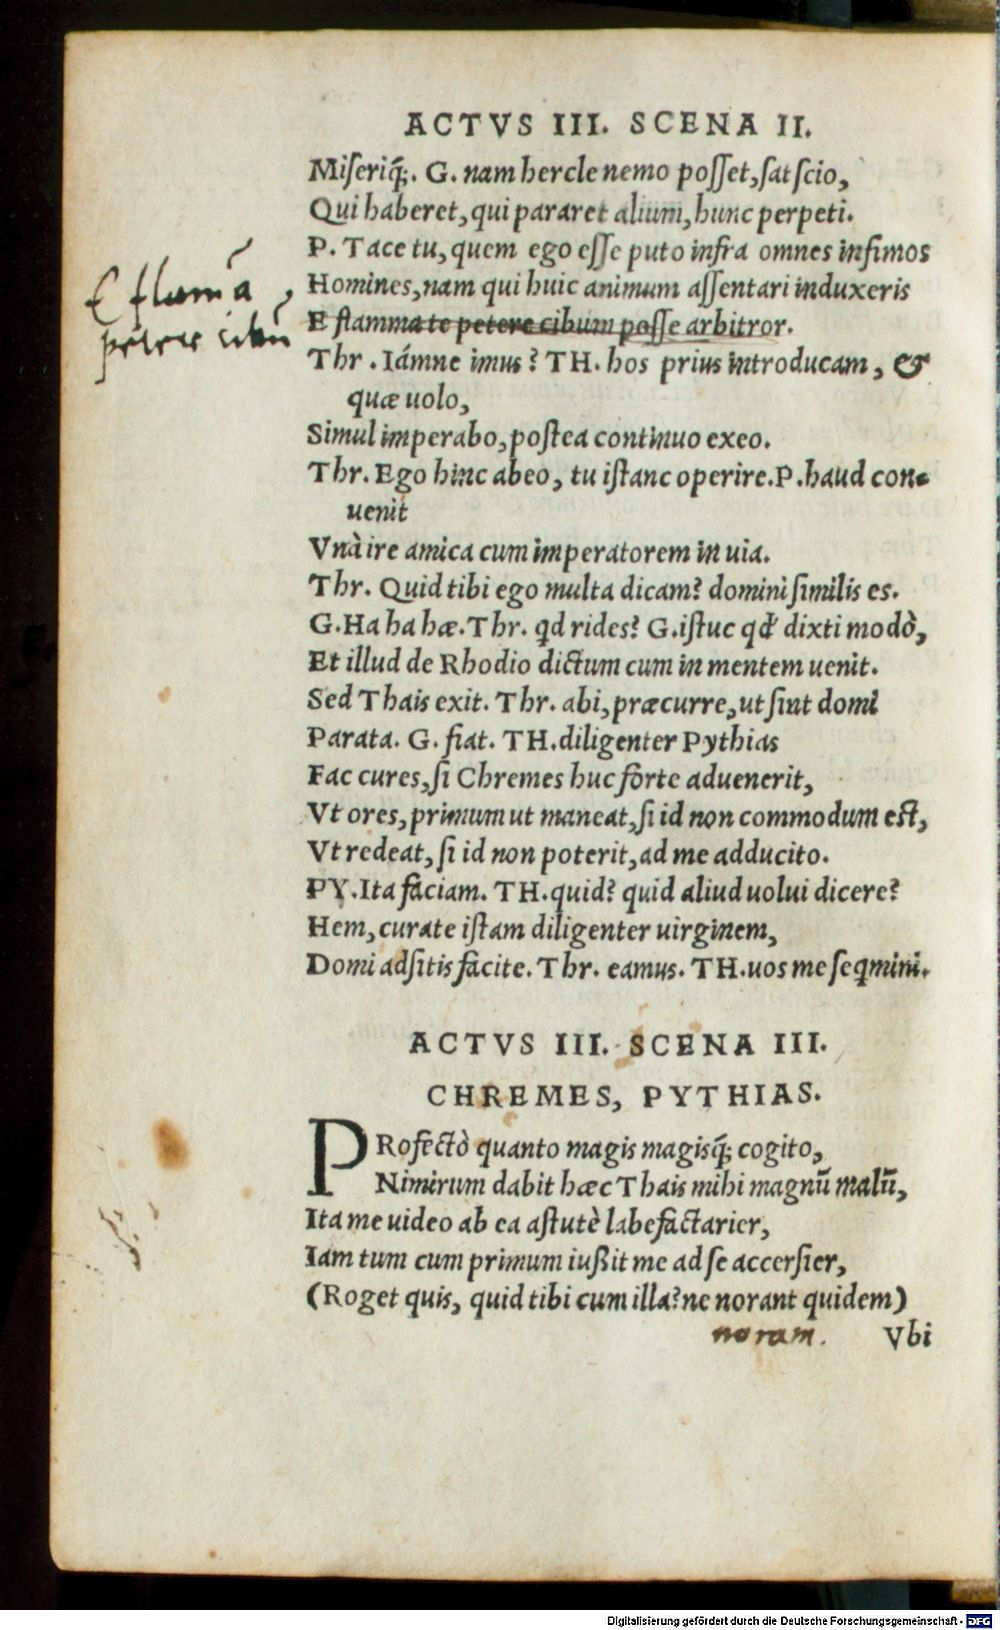 ACTVS III. SCENA II.
Miseriq̃;. G. nam hercle nemo posset, sat scio,
Qui haberet, qui pararet alium, hunc perpeti.
P. Tace tu, quem ego esse puto infra omnes infimos
Homines, nam qui huic animum assentari induxeris
E flamma te petere cibum posse arbitror.
E flamā
petere cibū
Thr. Iámne imus? TH. hos prius introducam, &
quæ uolo,
Simul imperabo, postea continuo exeo.
Thr. Ego hinc abeo, tu istanc operire. P. haud con-
uenit
Vnà ire amica cum imperatorem in uia.
Thr. Quid tibi ego multa dicam? domini similis es.
G. Ha ha hæ. Thr. qd rides? G. istuc qd' dixti modò,
Et illud de Rhodio dictum cum in mentem uenit.
Sed Thais exit. Thr. abi, præcurre, ut sint domi
Parata. G. fiat. TH. diligenter Pythias
Fac cures, si Chremes huc forte aduenerit,
Vt ores, primum ut maneat, si id non commodum est,
Vt redeat, si id non poterit, ad me adducito.
PY. Ita faciam. TH. quid? quid aliud uolui dicere?
Hem, curate istam diligenter uirginem,
Domi adsitis facite. Thr. eamus. TH. uos me seqmini.
ACTVS III. SCENA III.
CHREMES, PYTHIAS.
PRofectò quanto magis magisq̃; cogito,
Nimirum dabit hæc Thais mihi magnū malū,
Ita me uideo ab ea astutè labefactarier,
Iam tum cum primum iußit me ad se accersier,
(Roget quis, quid tibi cum illa? ne norant quidem)
noram.
Vbi
Digitalisierung gefördert durch die Deutsche Forschungsgemeinschaft - DFG